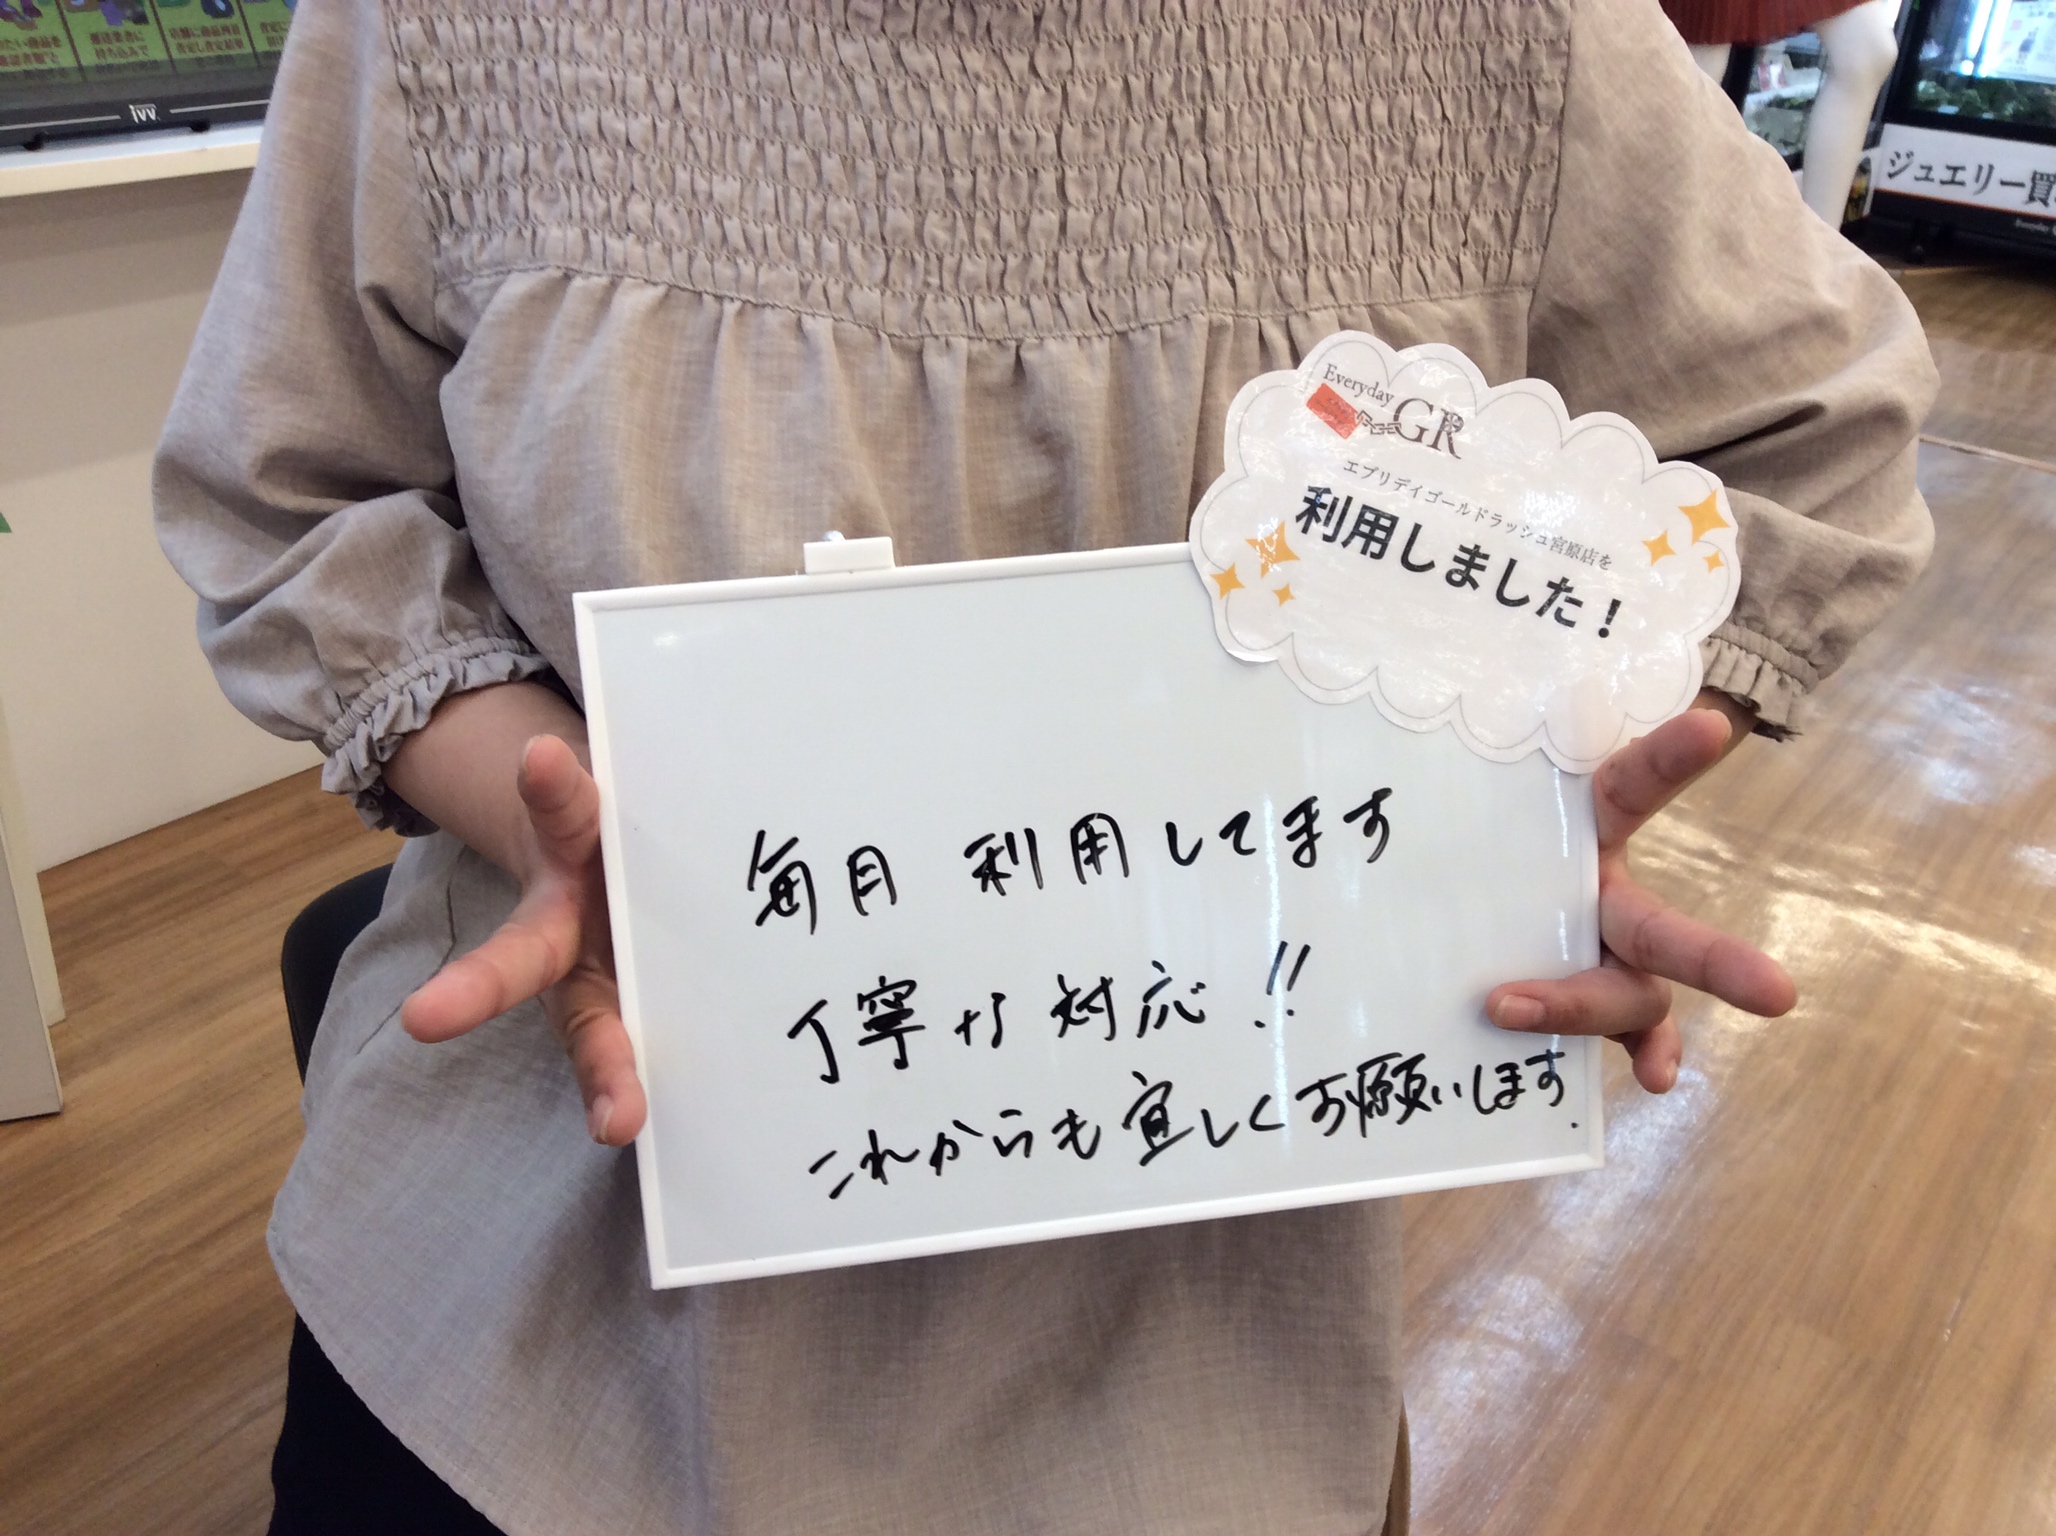 JVC
ジュエリー買
Everyday
GR
エブリデイゴールドラッシュ宮原店を
利用しました！
毎月 利用してます
丁寧な対応!!
これからも宜しくお願いします.